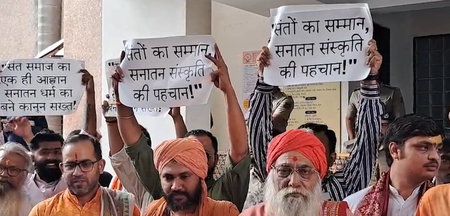 "संत समाज का
एक ही आह्वान
सनातन धर्म का
बने कानून सख्त
"संतों का सम्मान,
सनातन संस्कृति
की पहचान!"
"संतों का सम्मान,
सनातन संस्कृति
की पहचान!"